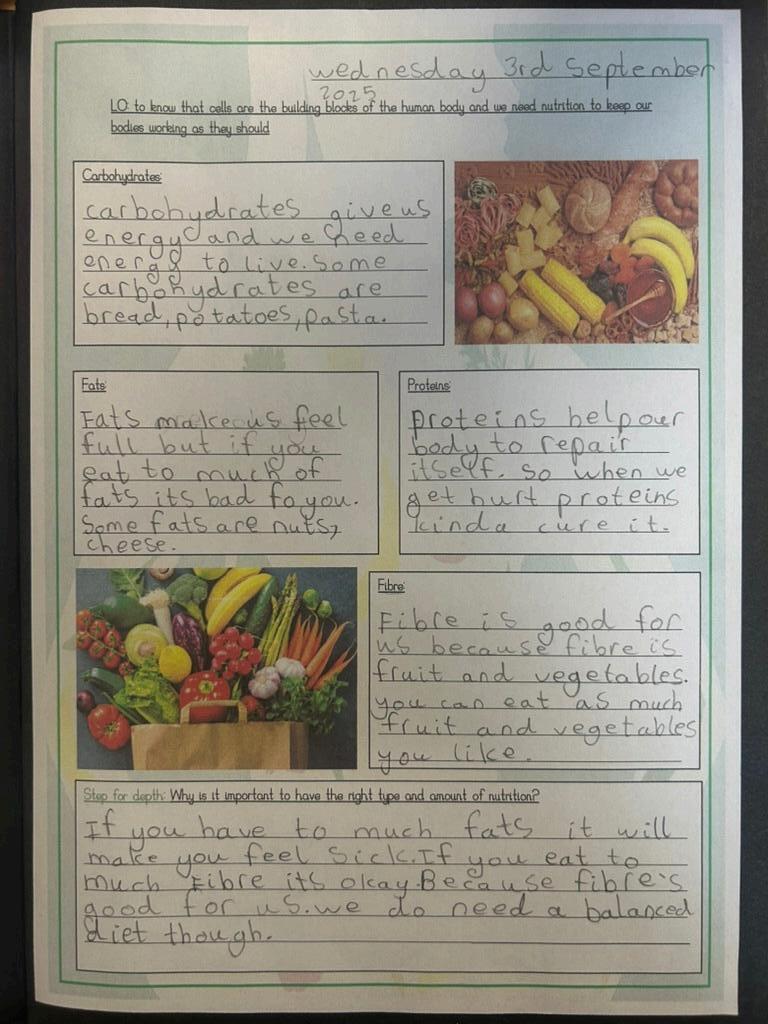 wednesday 3rd September
2025
LO: to know that cells are the building blocks of the human body and we need nutrition to keep our
bodies working as they should
Carbohydrates:
carbohydrates give us
energy and we need
energy to live. Some
carbohydrates are
bread, potatoes, pasta.
Fats:
Fats make us feel
full but if you
eat to much of
fats its bad fo you.
Some fats are nuts,
cheese.
Proteins:
proteins help our
body to repair
itself. So when we
get hurt proteins
kinda cure it.
Fibre:
Fibre is good for
us because fibre is
fruit and vegetables.
you can eat as much
fruit and vegetables
you like.
Step for depth: Why is it important to have the right type and amount of nutrition?
If you have to much fats it will
make you feel sick. If you eat to
much Fibre its okay. Because fibre's
good for us. we do need a balanced
diet though.